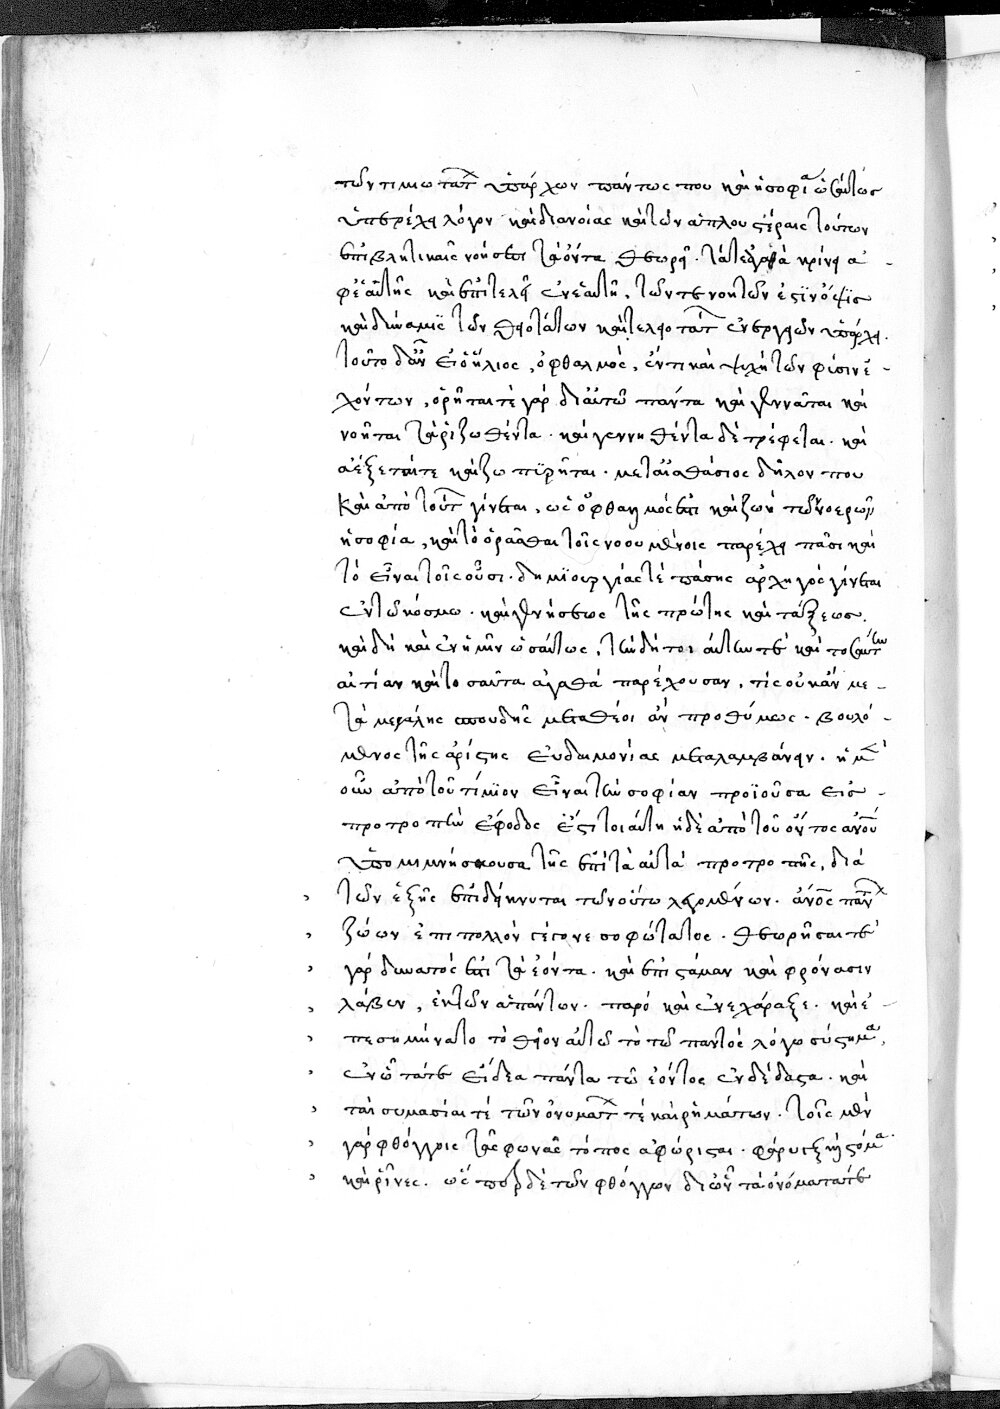 τῶν τιμιωτάτ ὑπάρχων πάντως που καὶ ἡ σοφία ὡσαύτως
ὑπερέχει λόγου καὶ διανοίας καὶ τῶν ἁπλουστέραις τούτων
ἐπιβλητικαῖς νοήσεσι τὰ ὄντα θεωρεῖ. τά τε ἀγαθὰ κρίνει ἀ-
φ' ἑαυτῆς καὶ ἐπιτελεῖ ἐν ἑαυτῇ. τῶν τε νοητῶν ἐστὶν ὄψις
καὶ δύναμις τῶν θειοτάτων καὶ τελειοτάτ ἐνεργειῶν ὑπάρχει.
τοῦτο δ' ἂν εἰ ὁ ἥλιος, ὀφθαλμός, ἔντι καὶ ψυχὴ τῶν φύσιν ἐ-
χόντων, ὁρῆται τὲ γὰρ δι' αὐτῶ πάντα καὶ γεννᾶται καὶ
νοῆται τὰ ῥιζωθέντα. καὶ γεννηθέντα δὲ τρέφεται. καὶ
ἀέξεταί τε καὶ ζωπυρῆται. μετὰ αἰσθάσιος δῆλον που
καὶ ἀπὸ τούτ γίνεται, ὡς ὀφθαλμός ἐστι καὶ ζωὴ τῶν νοερῶν
ἡ σοφία, καὶ τὸ ὁρᾶσθαι τοῖς νοουμένοις παρέχει πᾶσι καὶ
τὸ εἶναι τοῖς οὖσι. δημιουργίας τὲ πάσης ἀρχηγὸς γίνεται
ἐν τῶ κόσμω. καὶ γενέσεως τῆς πρώτης καὶ τάξεως.
καὶ δὴ καὶ ἐν ἡμῖν ὡσαύτως, τὴν δὴ τοι αὐτήν τε καὶ τοσαύτην
αἰτίαν καὶ τοσαῦτα ἀγαθὰ παρέχουσαν, τίς οὐκ ἂν με-
τὰ μεγάλης σπουδῆς μεταθέοι ἂν προθύμως. βουλό-
μενος τῆς ἀρίστης εὐδαιμονίας μεταλαμβάνειν. ἡ μὲν
οὖν ἀπὸ τοῦ τίμιον εἶναι τὴν σοφίαν προϊοῦσα εἰς
προτροπὴν ἔφοδος ἐστὶ τοιαύτη ἡ δὲ ἀπὸ τοῦ ὄντος ἀνοῦ
ὑπομιμνήσκουσα τῆς ἐπὶ τὰ αὐτὰ προτροπῆς, διὰ
τῶν ἑξῆς ἐπιδείκνυται τῶν οὕτω λεγομένων. ἄνος πάντ
ζώων ἐπιπολλὸν γέγονε σοφώτατος. θεωρῆσαί τε
γὰρ δυνατός ἐστι τὰ ἐόντα. καὶ ἐπιστάμαν καὶ φρόνασιν
λάβεν, ἐκ τῶν ἁπάντων. παρὸ καὶ ἐνεχάραξε. καὶ ἐ-
πεσημήνατο τὸ θεῖον αὐτῶ τὸ τῶ παντὸς λόγω σύστημα,
ἐν ὧ τάτε εἴδεα πάντα τῶ ἐόντος ἐνδέδασται. καὶ
ταὶ σημασίαι τὲ τῶν ὀνομάτ τὲ καὶ ῥημάτων. τοῖς μὲν
γὰρ φθόγγοις τᾶς φωνᾶς τόπος ἀφώρισται. φάρυγξ καὶ στόμα
καὶ ῥῖνες. ὥσπερ δὲ τῶν φθόγγων δι' ὧν τὰ ὀνόματα τε